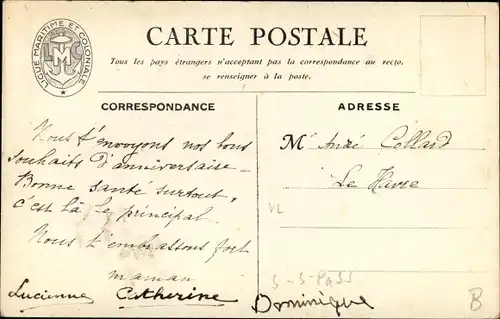 LIGUE MARITIME ET COLONIALE
LMC
CARTE POSTALE
Tous les pays étrangers n'acceptant pas la correspondance au recto,
se renseigner à la poste.
CORRESPONDANCE
Nous t'envoyons nos bons
souhaits d'anniversaire -
Bonne santé surtout,
c'est là le principal.
Nous t'embrassons fort
maman
Lucienne Catherine Dominique
ADRESSE
Mr André Collard
Le Havre
VL
B